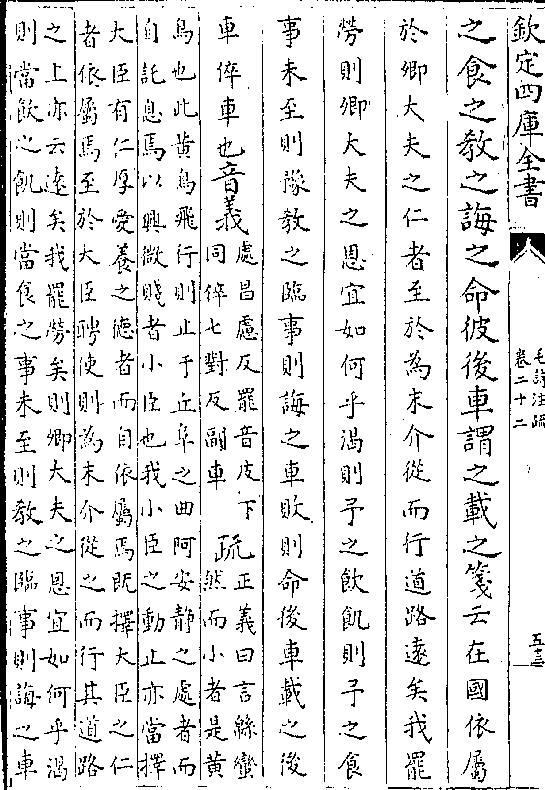 欽定四庫全書
毛詩注疏
卷二十二
五十三
之食之教之誨之命彼後車謂之載之箋云在國依屬
於卿大夫之仁者至於為末介從而行道路遠矣我罷
勞則卿大夫之恩宜如何乎渴則予之飲飢則予之食
事未至則豫教之臨事則誨之車敗則命後車載之後
車倅車也音義
處昌慮反罷音皮下
同倅七對反副車
疏
正義曰言緜蠻
然而小者是黃
鳥也此黃鳥飛行則止于丘阜之曲阿安静之處者而
自託息焉以興微賤者小臣也我小臣之動止亦當擇
大臣有仁厚愛養之德者而自依屬焉既擇大臣之仁
者依屬焉至於大臣聘使則為末介從之而行其道路
之上亦云遠矣我罷勞矣則卿大夫之恩宜如何乎渴
則當飲之飢則當食之事未至則教之臨事則誨之車